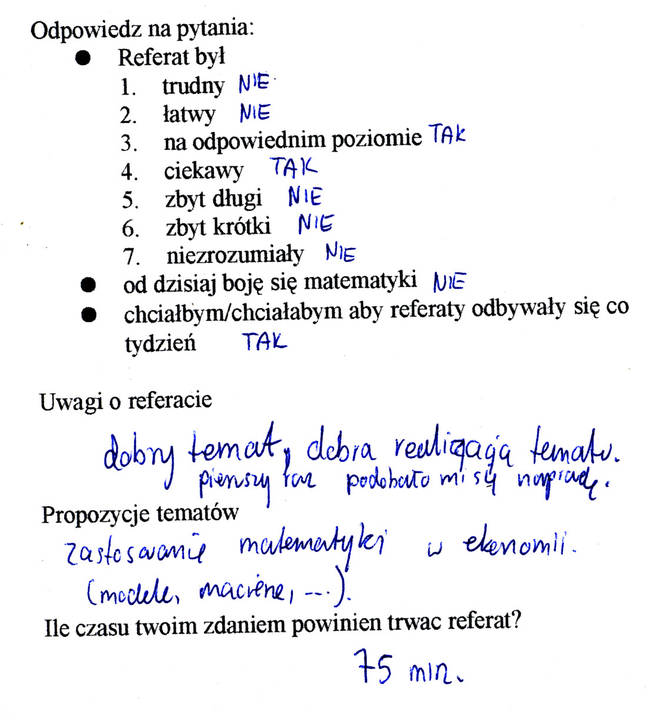 Odpowiedz na pytania:
● Referat był
1. trudny NIE
2. łatwy NIE
3. na odpowiednim poziomie TAK
4. ciekawy TAK
5. zbyt długi NIE
6. zbyt krótki NIE
7. niezrozumiały NIE
● od dzisiaj boję się matematyki NIE
● chciałbym/chciałabym aby referaty odbywały się co
tydzień TAK
Uwagi o referacie
dobry temat, dobra realizacja tematu.
pierwszy raz podobało mi się naprawdę.
Propozycje tematów
zastosowanie matematyki w ekonomii.
(modele, macierze, ...).
Ile czasu twoim zdaniem powinien trwac referat?
75 min.